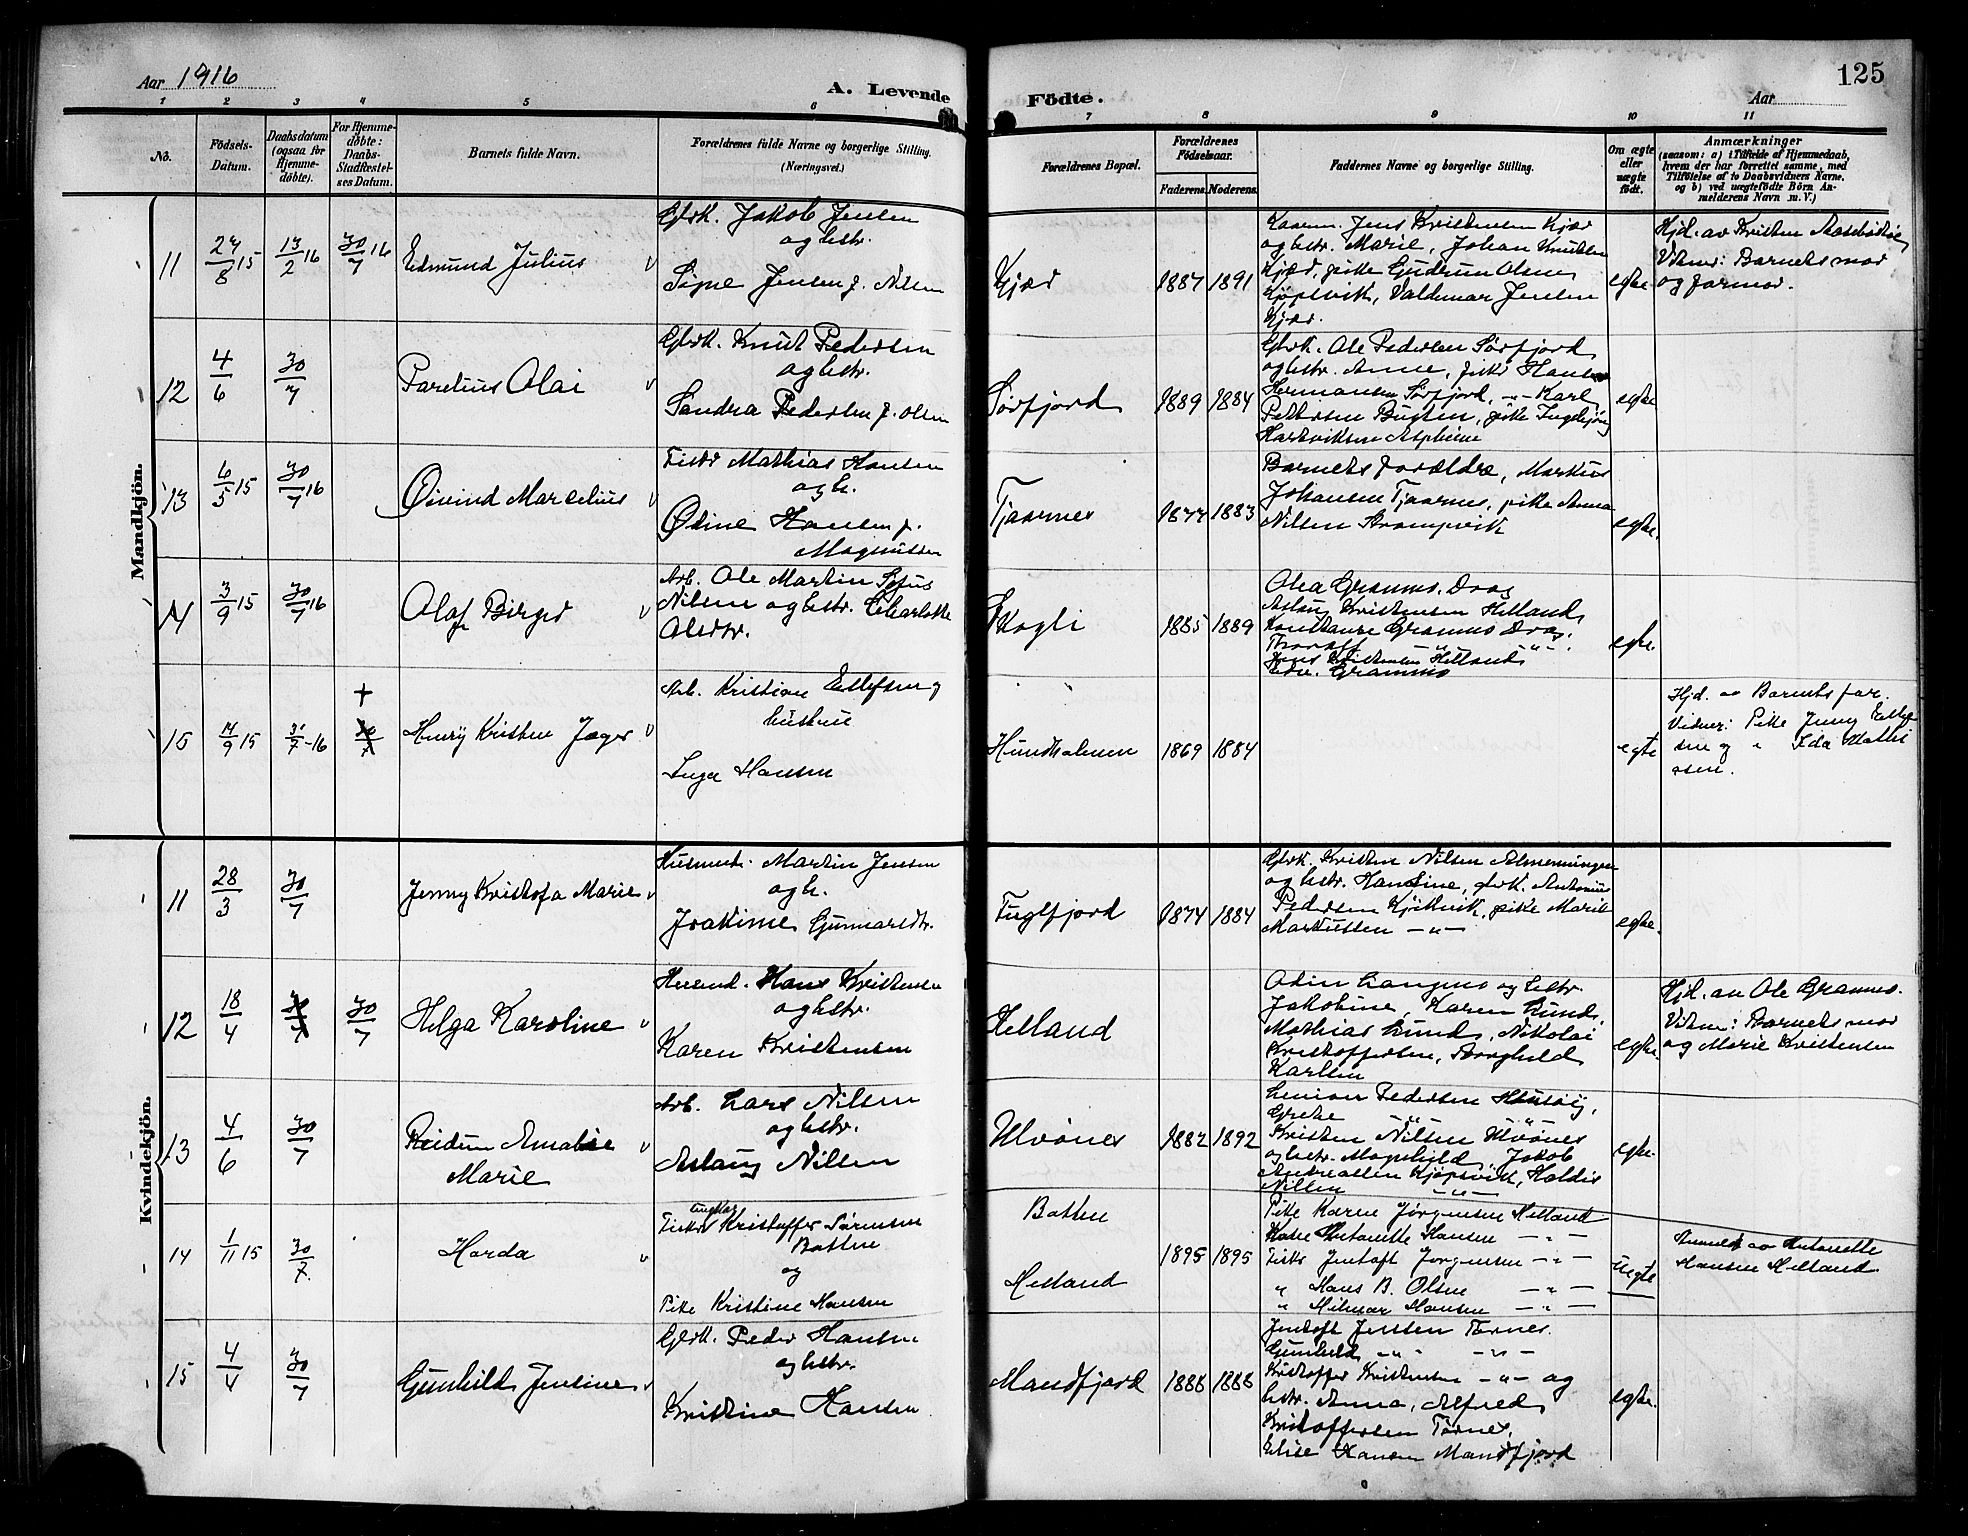 Aar 1916
A. Levende
Födte.
Aar
125
1 2 3 4 5 6 7 8 9 10 11
No.
Födsels-Datum.
Daabsdatum (ogsaa for Hjemme-döbte).
For Hjemme-döbte: Daabs-Stadfæstel-ses Datum.
Barnets fulde Navn.
Forældrenes fulde Navne og borgerlige Stilling. (Næringsvei.)
Forældrenes Bopæl.
Forældrenes Födselsaar.
Faderens. Moderens.
Faddernes Navne og borgerlige Stilling.
Om ægte eller uægte födt.
Anmærkninger
(saasom: a) i Tilfælde af Hjemmedaab,
hvem der har forrettet samme, med
Tilföielse af to Daabsvidners Navne,
og b) ved uægtefödte Börn An-
melderens Navn m. V.)
Mandkjön.
11 27/8 15 13/2 16 30/7 16 Edmund Julius
Gbrk. Jakob Jensen
og hstr.
Signe Jensen f. Nilsen
Kjær 1887 1891
Kaarm. Jens Kristensen Kjær
og hstr. Marie, Johan Knutsen
Kjær, pike Gudrun Olsen
Kjöpsvik, Valdemar Jensen
Kjær.
egte
Hjd. av Kristen
Vitner: Barnets mor
og farmor.
12 4/6 30/7 Parelius Olai
Gbrk. Knut Pedersen
og hstr.
Sandra Pedersen f. Olsen
Sörfjord 1889 1884
Gbrk. Ole Pedersen Sörfjord
og hstr. Anne, pike Hansine
Hermansen Sörfjord, -"- Karl
Pettersen Bugten, pike Ingebjörg
Hartviksen
egte
13 6/5 15 30/7 16 Öivind Marselius
Fisk. Mathias Hansen
og h.
Odine Hansen f.
Magnussen
Tjaarnes 1877 1883
Barnets forældre, Markus
Johansen Tjaarnes, pike Anna
Nilsen
egte.
14 3/9 15 30/7 16 Olaf Birger
Arb. Ole Martin
Nilsen og hstr. Charlotte
Olsdtr.
Skogli 1885 1889
Olea Grammo. Drag
Aslaug Kristensen Helland,
Konstanse Grammo Drag.
Thoralf -"- -"-.
Jens Kristensen Helland
Edv. Grammo
egte.
15 14/9 15 30/7 - 16 + Henry Kristen Jæger
Arb. Kristian Ellefsen og
hustru
Inga Hansen
Hundholmen 1869 1884
egte
Hjd. av Barnets far.
Vidner: Pike Jenny Ellef
sen og " Ida Mathi
asen.
Kvindekjön.
11 28/3 30/7 Jenny Kristofa Marie
Husmand. Martin Jensen
og h.
Joakime Gunnarsdtr.
Fuglfjord 1874 1884
Gbrk. Kristen Nilsen Almenningen
og hstr. Hansine, gbrk. Antonius
Pedersen Kjölvik, pike Marie
Markussen -"-
egte.
12 18/4 30/7 30/7 Helga Karoline
Husmd. Hans Kristensen
og hstr.
Karen Kristensen
Helland
Odin Langmo og hstr.
Jakobine, Karen Lund,
Mathias Lund, Nikolai
Kristoffersen, Borghild
Karlsen
egte.
Hjd. av Ole Grammo.
Vitner: Barnets mor
og Marie Kristensen
13 4/6 30/7 Reidun Amalie
Marie
Arb. Lars Nilsen
og hstr.
Aslaug Nilsen
Ulvönes 1882 1892
Leonor Pedersen
Grete -"-
Kristen Nilsen Ulvönes
og hstr. Magnhild, Jakob
Andreassen Kjöpsvik, Haldis
Nilsen -"-
egte.
14 1/11 15 30/7. Harda
ungkar
Fisker Kristoffer Sörensen
Botten
og
Pike Kristine Hansen
Botten
Helland
1895 1895
Pike Karen Jörgensen Helland
Kone Antonette Hansen -"-
Fisker Jentoft Jörgensen -"-
" Hans B. Olsen -"-
" Hilmar Hansen -"-
uegte
Anmeldt av Antonette
Hansen Helland.
15 4/4 30/7 Gunhild Jensine
Gbrk. Peder Hansen
og hstr.
Kristine Hansen
Mandfjord 1888 1888
Jentoft Jensen Tornes.
Gunhild -"- -"-
Kristoffer Kristensen -"- og
hstr. Anna, Alfred
Kristoffersen Tornes,
Elise Hansen Mandfjord
egte.